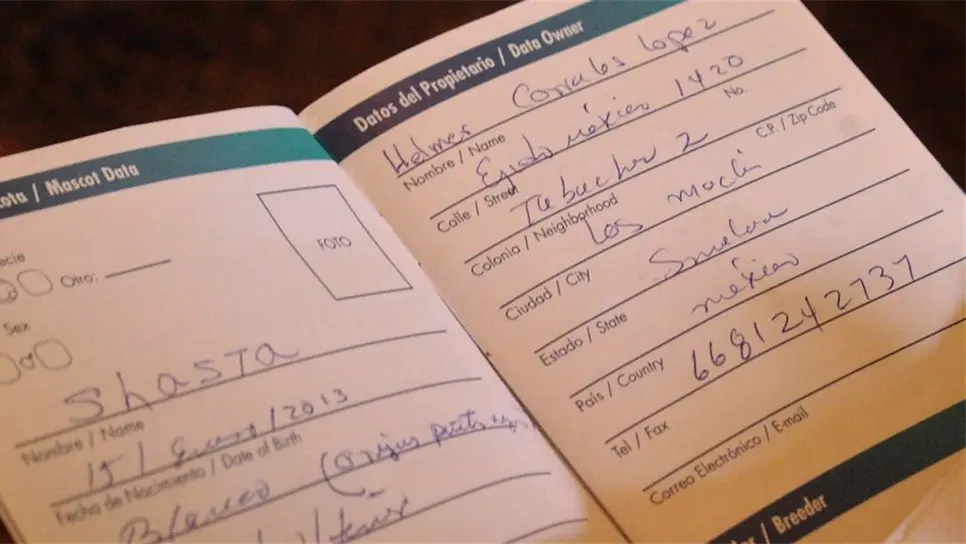 ota / Mascot Data
ecie
Otro:
FOTO
Sex
Shasta
Nombre / Name
15 / Enero / 2013
Fecha de Nacimiento / Date of Birth
Blanco (orejas
Datos del Propietario / Data Owner
Helmes Corrales Lopez
Nombre / Name
Ejido México 1420
Calle / Street
No.
Tabachin 2
Colonia / Neighborhood
C.P. / Zip Code
Los Mochis
Ciudad / City
Sinaloa
Estado / State
México
País / Country
6681242737
Tel / Fax
Correo Electrónico / E-mail
/ Breeder